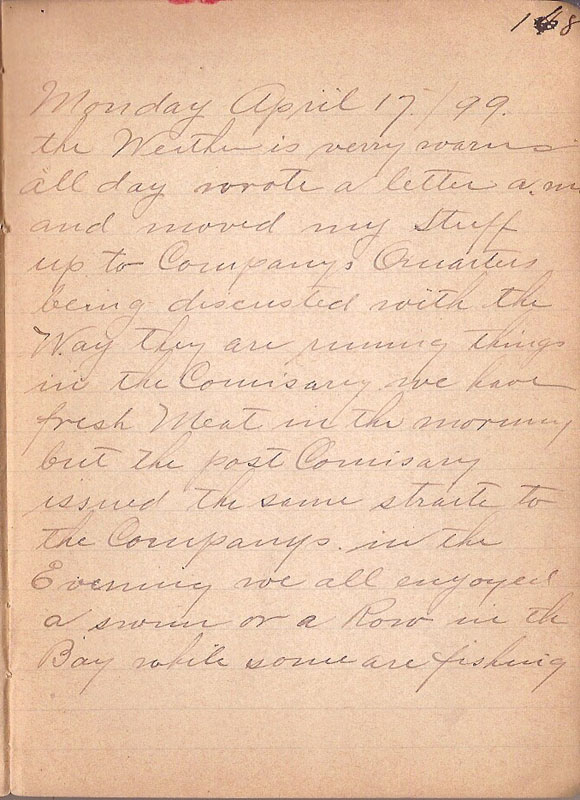 168
Monday April 17./99.
the Weither is verry warm
all day wrote a letter a.m
and moved my Stuff
up to Companys Quarters
being discusted with the
Way they are running things
in the Comisarry we have
fresh Meat in the morning
but the post Comisary
issued the same straite to
the Companys. in the
Evening we all enyoyed
a swim or a Row in the
Bay while some are fishing